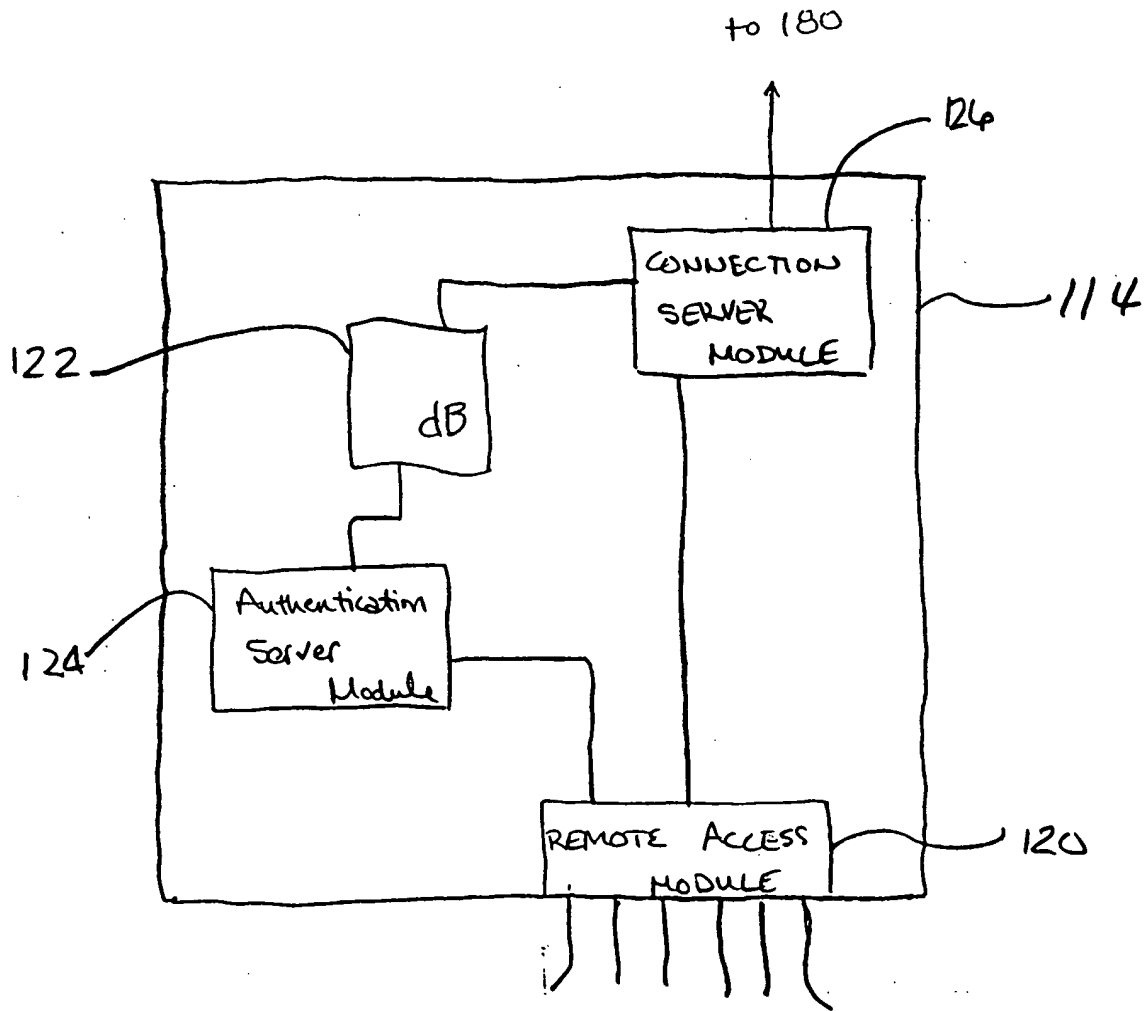 to 180
126
CONNECTION
SERVER
MODULE
114
122
dB
Authentication
Server
Module
124
REMOTE ACCESS
MODULE
120